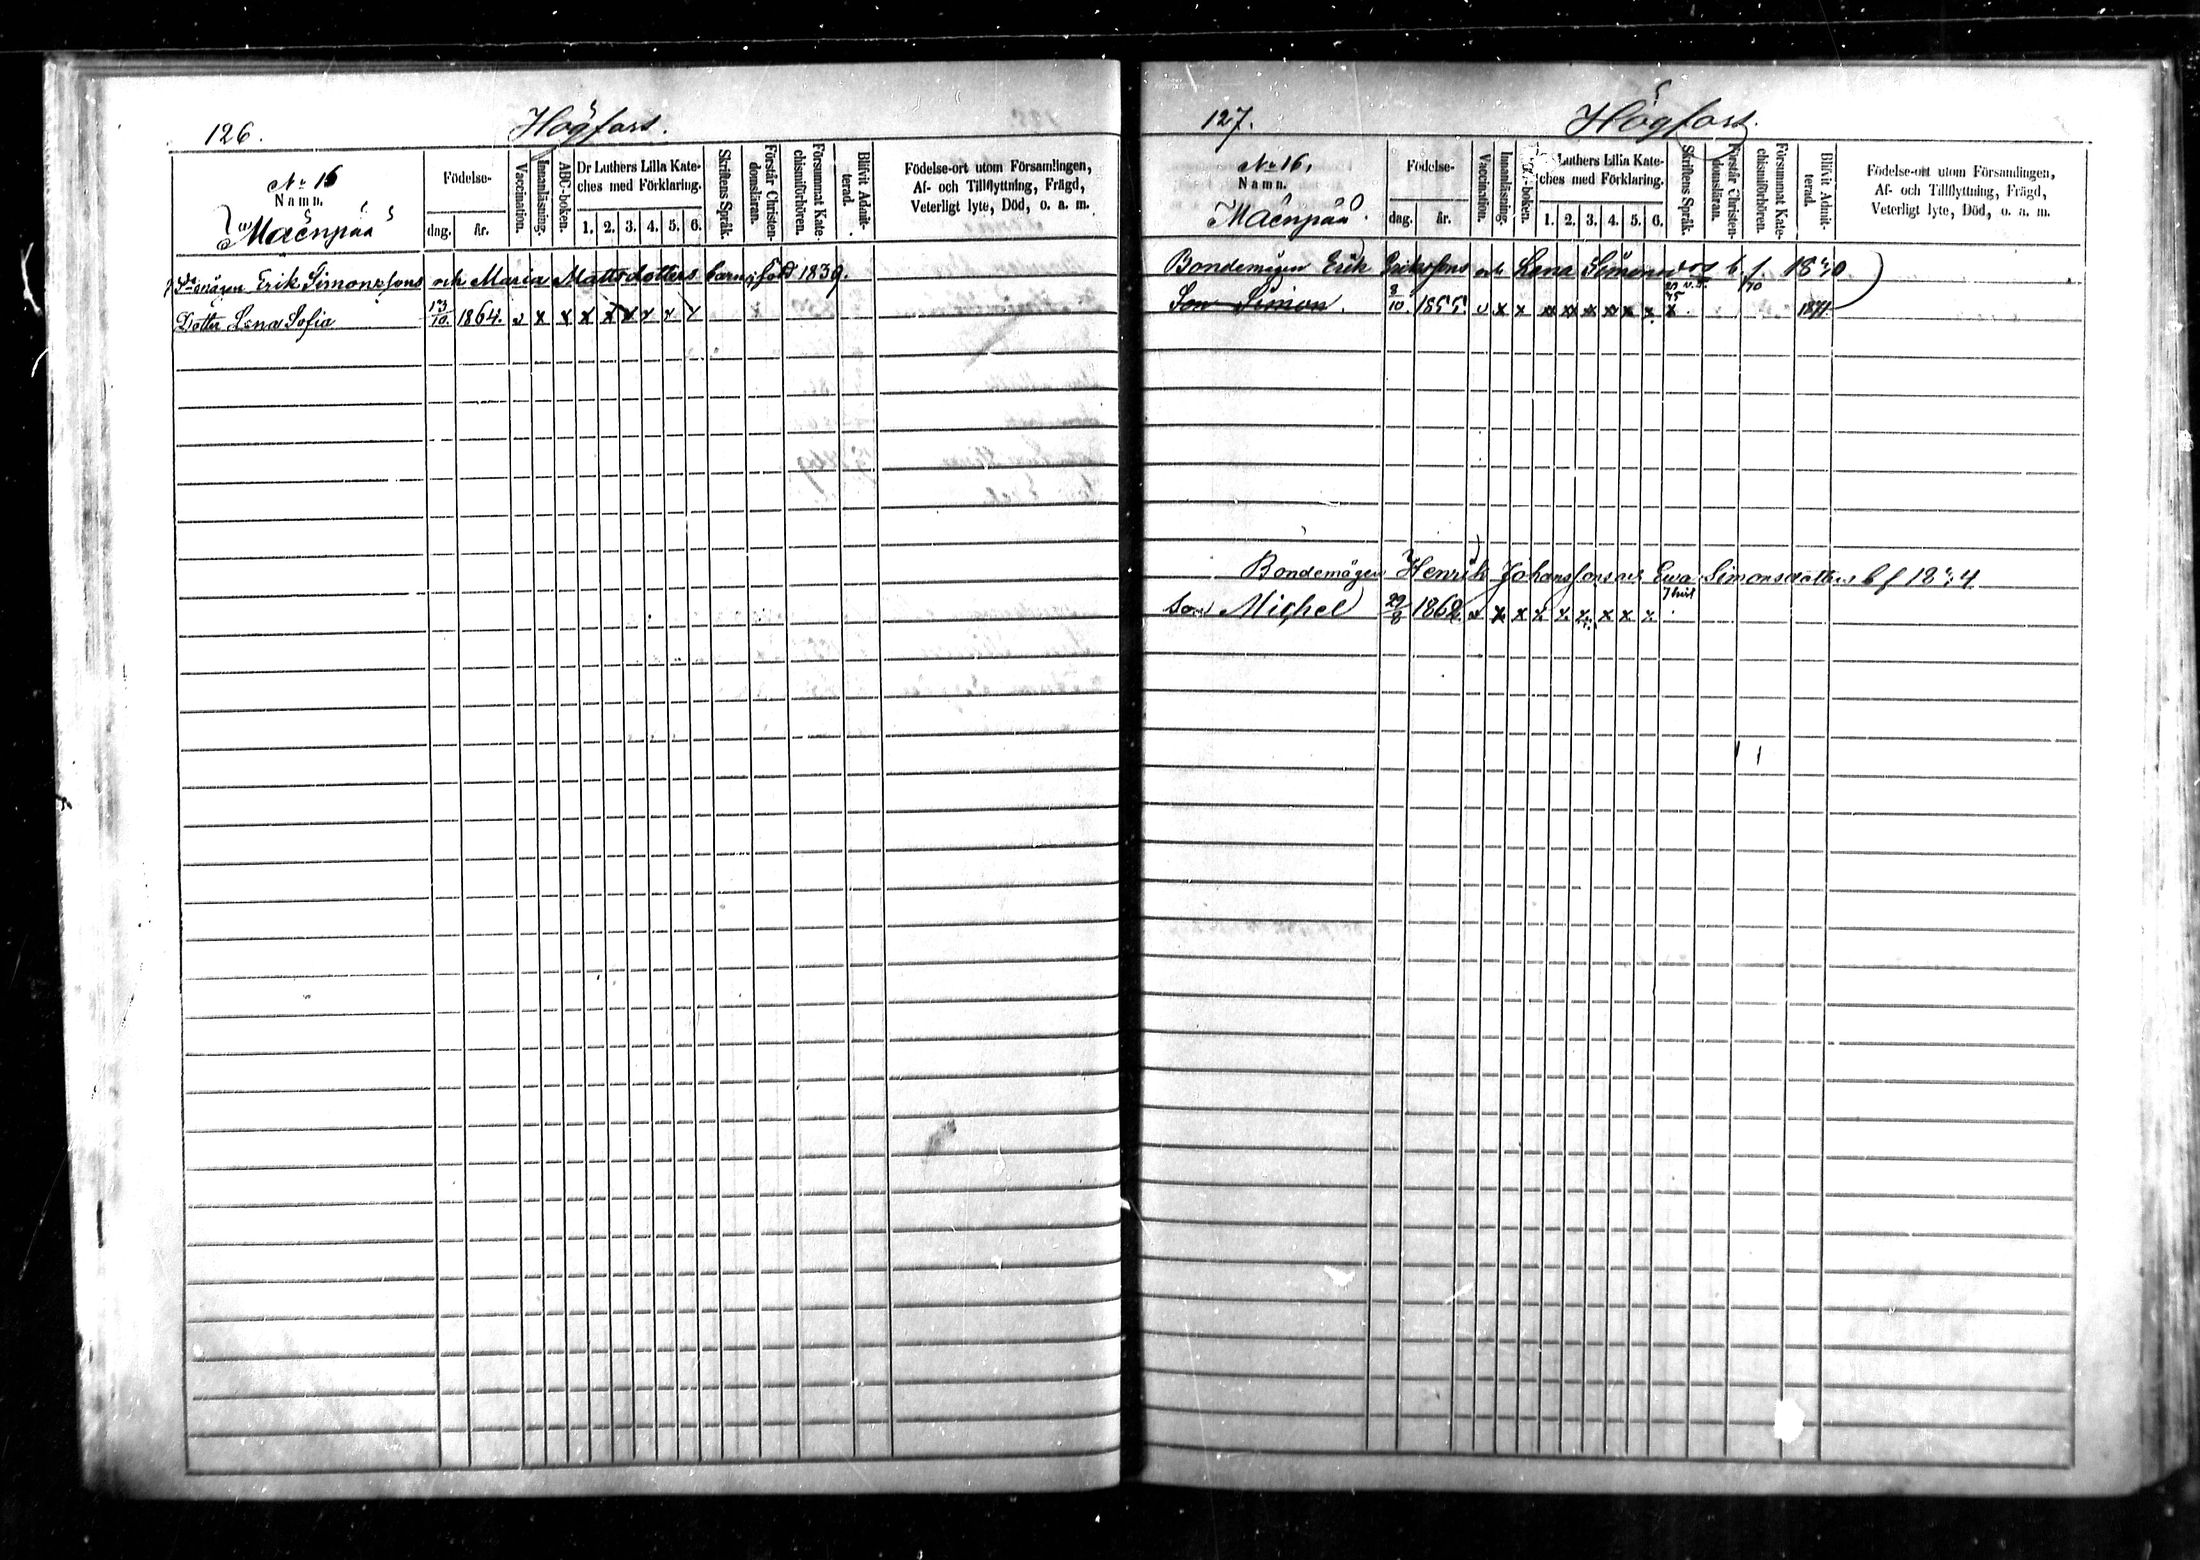 126.
Högfors.
No 16
Namn.
Mäenpää
Födelse-
dag.
år.
Vaccination.
Innanläsning.
ABC-boken.
Dr Luthers Lilla Kate-
ches med Förklaring.
1. 2. 3. 4. 5. 6.
Skriftens Språk.
Förstår Christen-
domsläran.
Försummat Kate-
chismiförhören.
Blifvit Admit-
terad.
Födelse-ort utom Församlingen,
Af- och Tillflyttning, Frägd,
Veterligt lyte, Död, o. a. m.
Erik Simonssons och Maria Mattsdotters barn, föld 1839.
Dotter Lena Sofia 13/10. 1864. v x x x x x x x x x
127.
Högfors.
No 16.
Namn.
Mäenpää.
Födelse-
dag.
år.
Vaccination.
Innanläsning.
-boken.
Luthers Lilla Kate-
ches med Förklaring.
1. 2. 3. 4. 5. 6.
Skriftens Språk.
Förstår Christen-
domsläran.
Försummat Kate-
chismiförhören.
Blifvit Admit-
terad.
Födelse-ort utom Församlingen,
Af- och Tillflyttning, Frägd,
Veterligt lyte, Död, o. a. m.
Bondemågen Erik Erikssons och Lena Simons b. f.
Son Simon. 8/10. 1855. v x x x x x x x x x 1871
Bondemågen Henrik Johanssons och Ewa Simonsdotters b f
Son Michel 29/8 1862 v x x x x x x x x